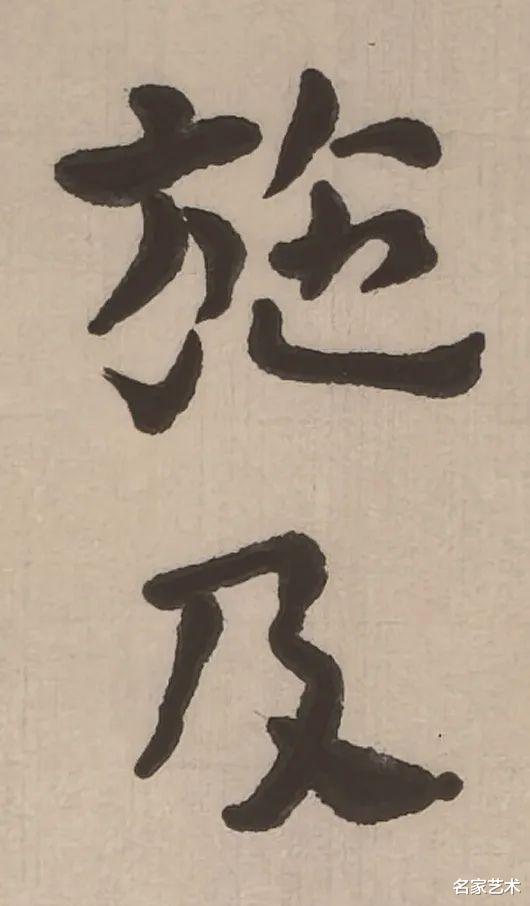 施及
名家艺术